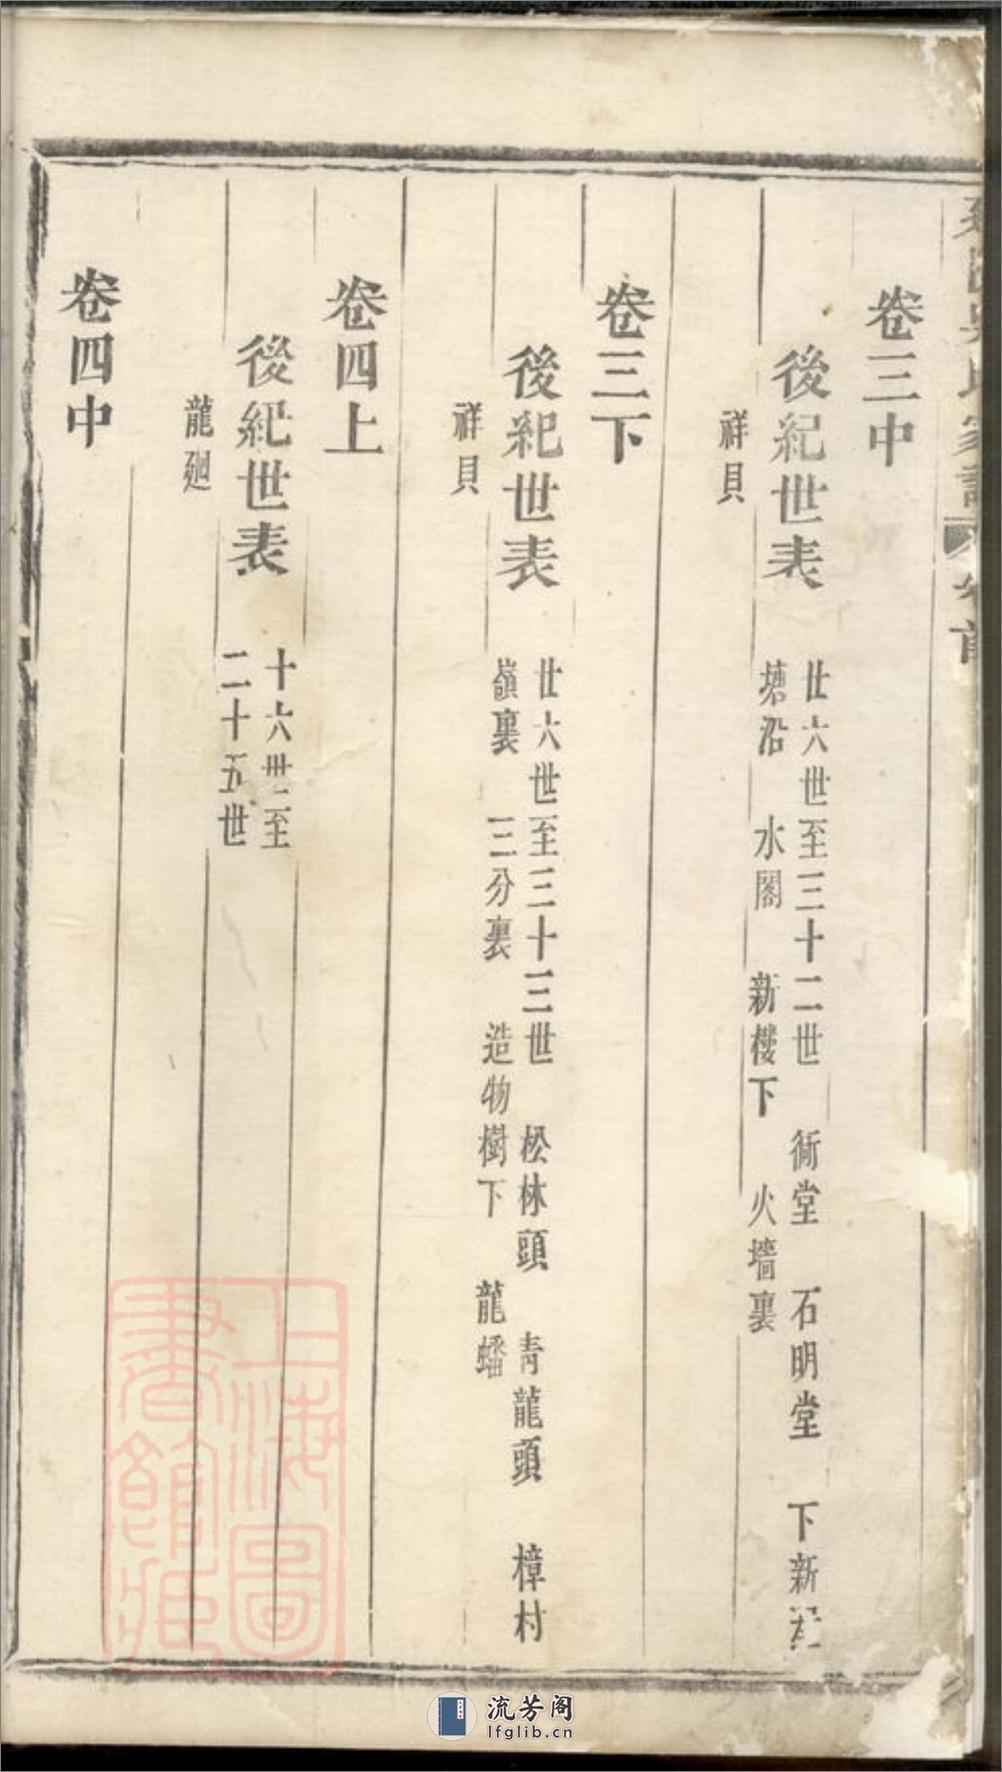 吳氏家譜
卷三中
後紀世表
廿六世至三十二世　衕堂　石明堂　下新
塘沿　水閣　新樓下　火墻裏
祥貝
卷三下
後紀世表
廿六世至三十三世　松林頭　青龍頭　樟村
嶺裏　三分裏　造物樹下　龍蟠
祥貝
卷四上
後紀世表
十六世至
二十五世
龍廻
卷四中
上海圖
書館藏
流芳阁
lfglib.cn